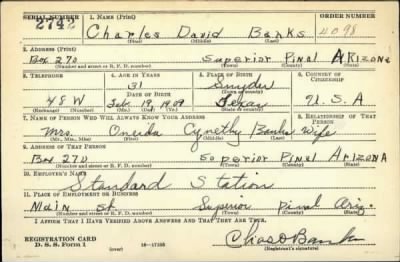 SERIAL NUMBER 1. NAME (Print) ORDER NUMBER
2742 Charles David Banks 11098
(First) (Middle) (Last)
2. ADDRESS (Print)
Box 270 Superior Pinal ARIZONA
(Number and street or R. F. D. number) (Town) (County) (State)
3. TELEPHONE 4. AGE IN YEARS 5. PLACE OF BIRTH 6. COUNTRY OF CITIZENSHIP
31 Snyder
DATE OF BIRTH (Town or county)
48W Feb. 19, 1909 Texas U.S.A
(Exchange) (Number) (Mo.) (Day) (Yr.) (State or country)
7. NAME OF PERSON WHO WILL ALWAYS KNOW YOUR ADDRESS 8. RELATIONSHIP OF THAT PERSON
Mrs Oneida Cynethy Banks Wife
(Mr., Mrs., Miss) (First) (Middle) (Last)
9. ADDRESS OF THAT PERSON
Box 270 Superior Pinal ARIZONA
(Number and street or R. F. D. number) (Town) (County) (State)
10. EMPLOYER'S NAME
Standard Station
11. PLACE OF EMPLOYMENT OR BUSINESS
Main St Superior Pinal Ariz.
(Number and street or R. F. D. number) (Town) (County) (State)
I AFFIRM THAT I HAVE VERIFIED ABOVE ANSWERS AND THAT THEY ARE TRUE.
REGISTRATION CARD Chas D Banks
D. S. S. Form 1 (over) 16—17105 (Registrant's signature)